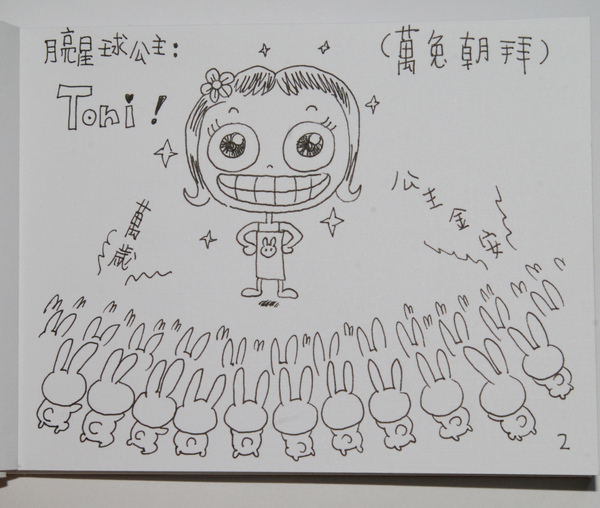 月亮星球公主：
（萬兔朝拜）
Toni！
公主金安
萬歲
2